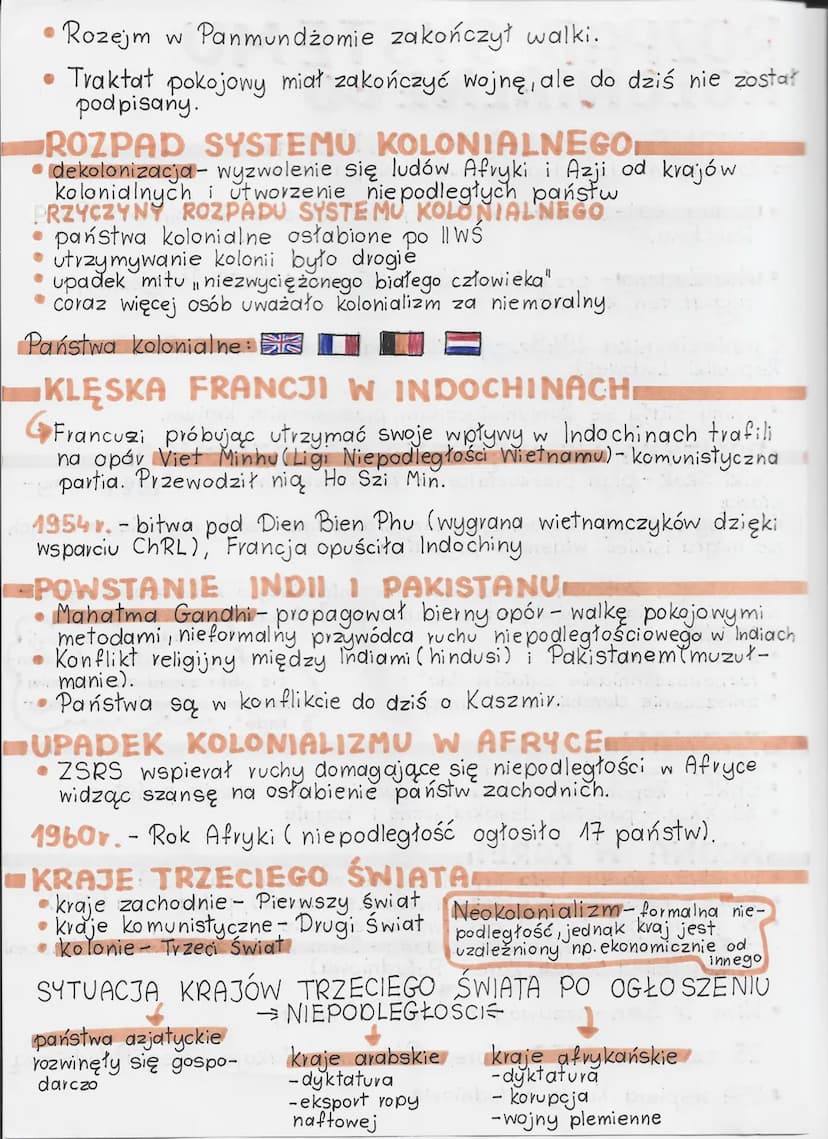 • Rozejm w Panmundżomie zakończył walki.
• Traktat pokojowy miał zakończyć wojnę, ale do dziś nie został
podpisany.
ROZPAD SYSTEMU KOLONIALNEGO
• dekolonizacja - wyzwolenie się ludów Afryki i Azji od krajów
kolonialnych i utworzenie niepodległych państw
PRZYCZYNY ROZPADU SYSTEMU KOLONIALNEGO
• państwa kolonialne osłabione po IIWŚ
• utrzymywanie kolonii było drogie
• upadek mitu „niezwyciężonego białego człowieka"
• coraz więcej osób uważało kolonializm za niemoralny.
Państwa kolonialne:
KLĘSKA FRANCJI W INDOCHINACH
Francuzi próbując utrzymać swoje wpływy w Indochinach trafili
na opór Viet Minhu (Ligi Niepodległości Wietnamu) - komunistyczna
partia. Przewodził nią Ho Szi Min.
1954r. - bitwa pod Dien Bien Phu (wygrana wietnamczyków dzięki
wsparciu ChRL), Francja opuściła Indochiny
POWSTANIE INDII I PAKISTANU
• Mahatma Gandhi - propagował bierny opór - walkę pokojowymi
metodami, nieformalny przywódca ruchu niepodległościowego w Indiach
• Konflikt religijny między Indiami (hindusi) i Pakistanem (muzuł-
manie).
• Państwa są w konflikcie do dziś o Kaszmir.
UPADEK KOLONIALIZMU W AFRYCE
• ZSRS wspierał ruchy domagające się niepodległości w Afryce
widząc szansę na osłabienie państw zachodnich.
1960r. - Rok Afryki (niepodległość ogłosiło 17 państw).
KRAJE TRZECIEGO ŚWIATA
• kraje zachodnie - Pierwszy świat
• kraje komunistyczne - Drugi Świat
• Kolonie - Trzeci Świat
Neokolonializm - formalna nie-
podległość, jednak kraj jest
uzależniony np. ekonomicznie od
innego
SYTUACJA KRAJÓW TRZECIEGO ŚWIATA PO OGŁOSZENIU
NIEPODLEGŁOŚCI
państwa azjatyckie
rozwinęły się gospo-
darczo
kraje arabskie
- dyktatura
- eksport ropy
naftowej
kraje afrykańskie
- dyktatura
- korupcja
- wojny plemienne